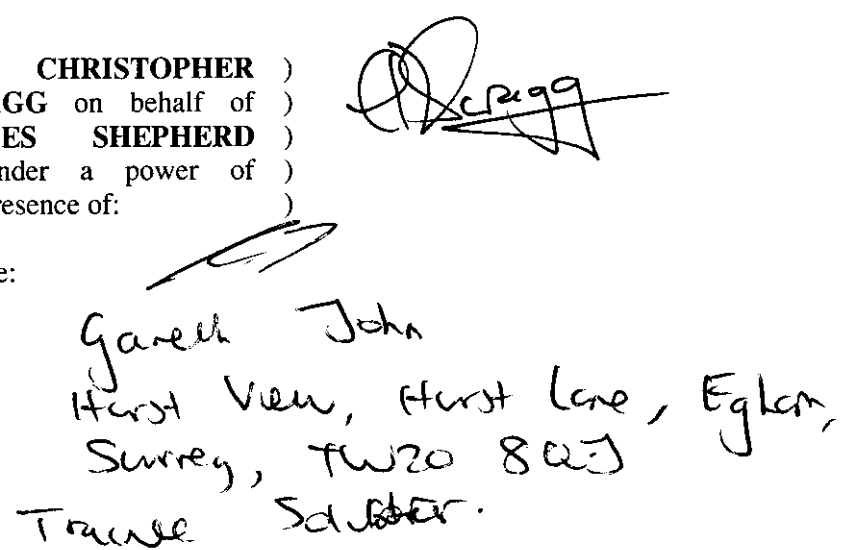 CHRISTOPHER )
GG on behalf of )
ES SHEPHERD )
nder a power of )
resence of: )
e:
Gareth John
Hurst View, Hurst Lane, Egham,
Surrey, TW20 8QJ
Trainee Solicitor.